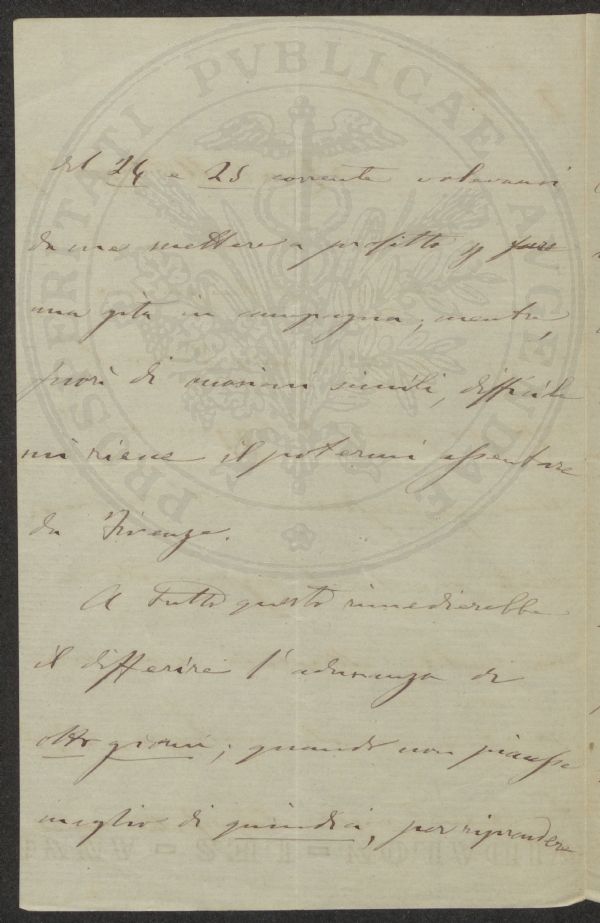 PROSPERITATI PVBLICAE AVGENDAE
del 24 e 25 corrente volevansi
da me mettere a profitto p fare
una gita in campagna, mentre,
fuori di occasioni simili, difficile
mi riesce il potermi assentare
da Firenze.
A tutto questo rimedierebbe
il differire l'adunanza di
otto giorni; quando non piacesse
meglio di quindici, per riprendere